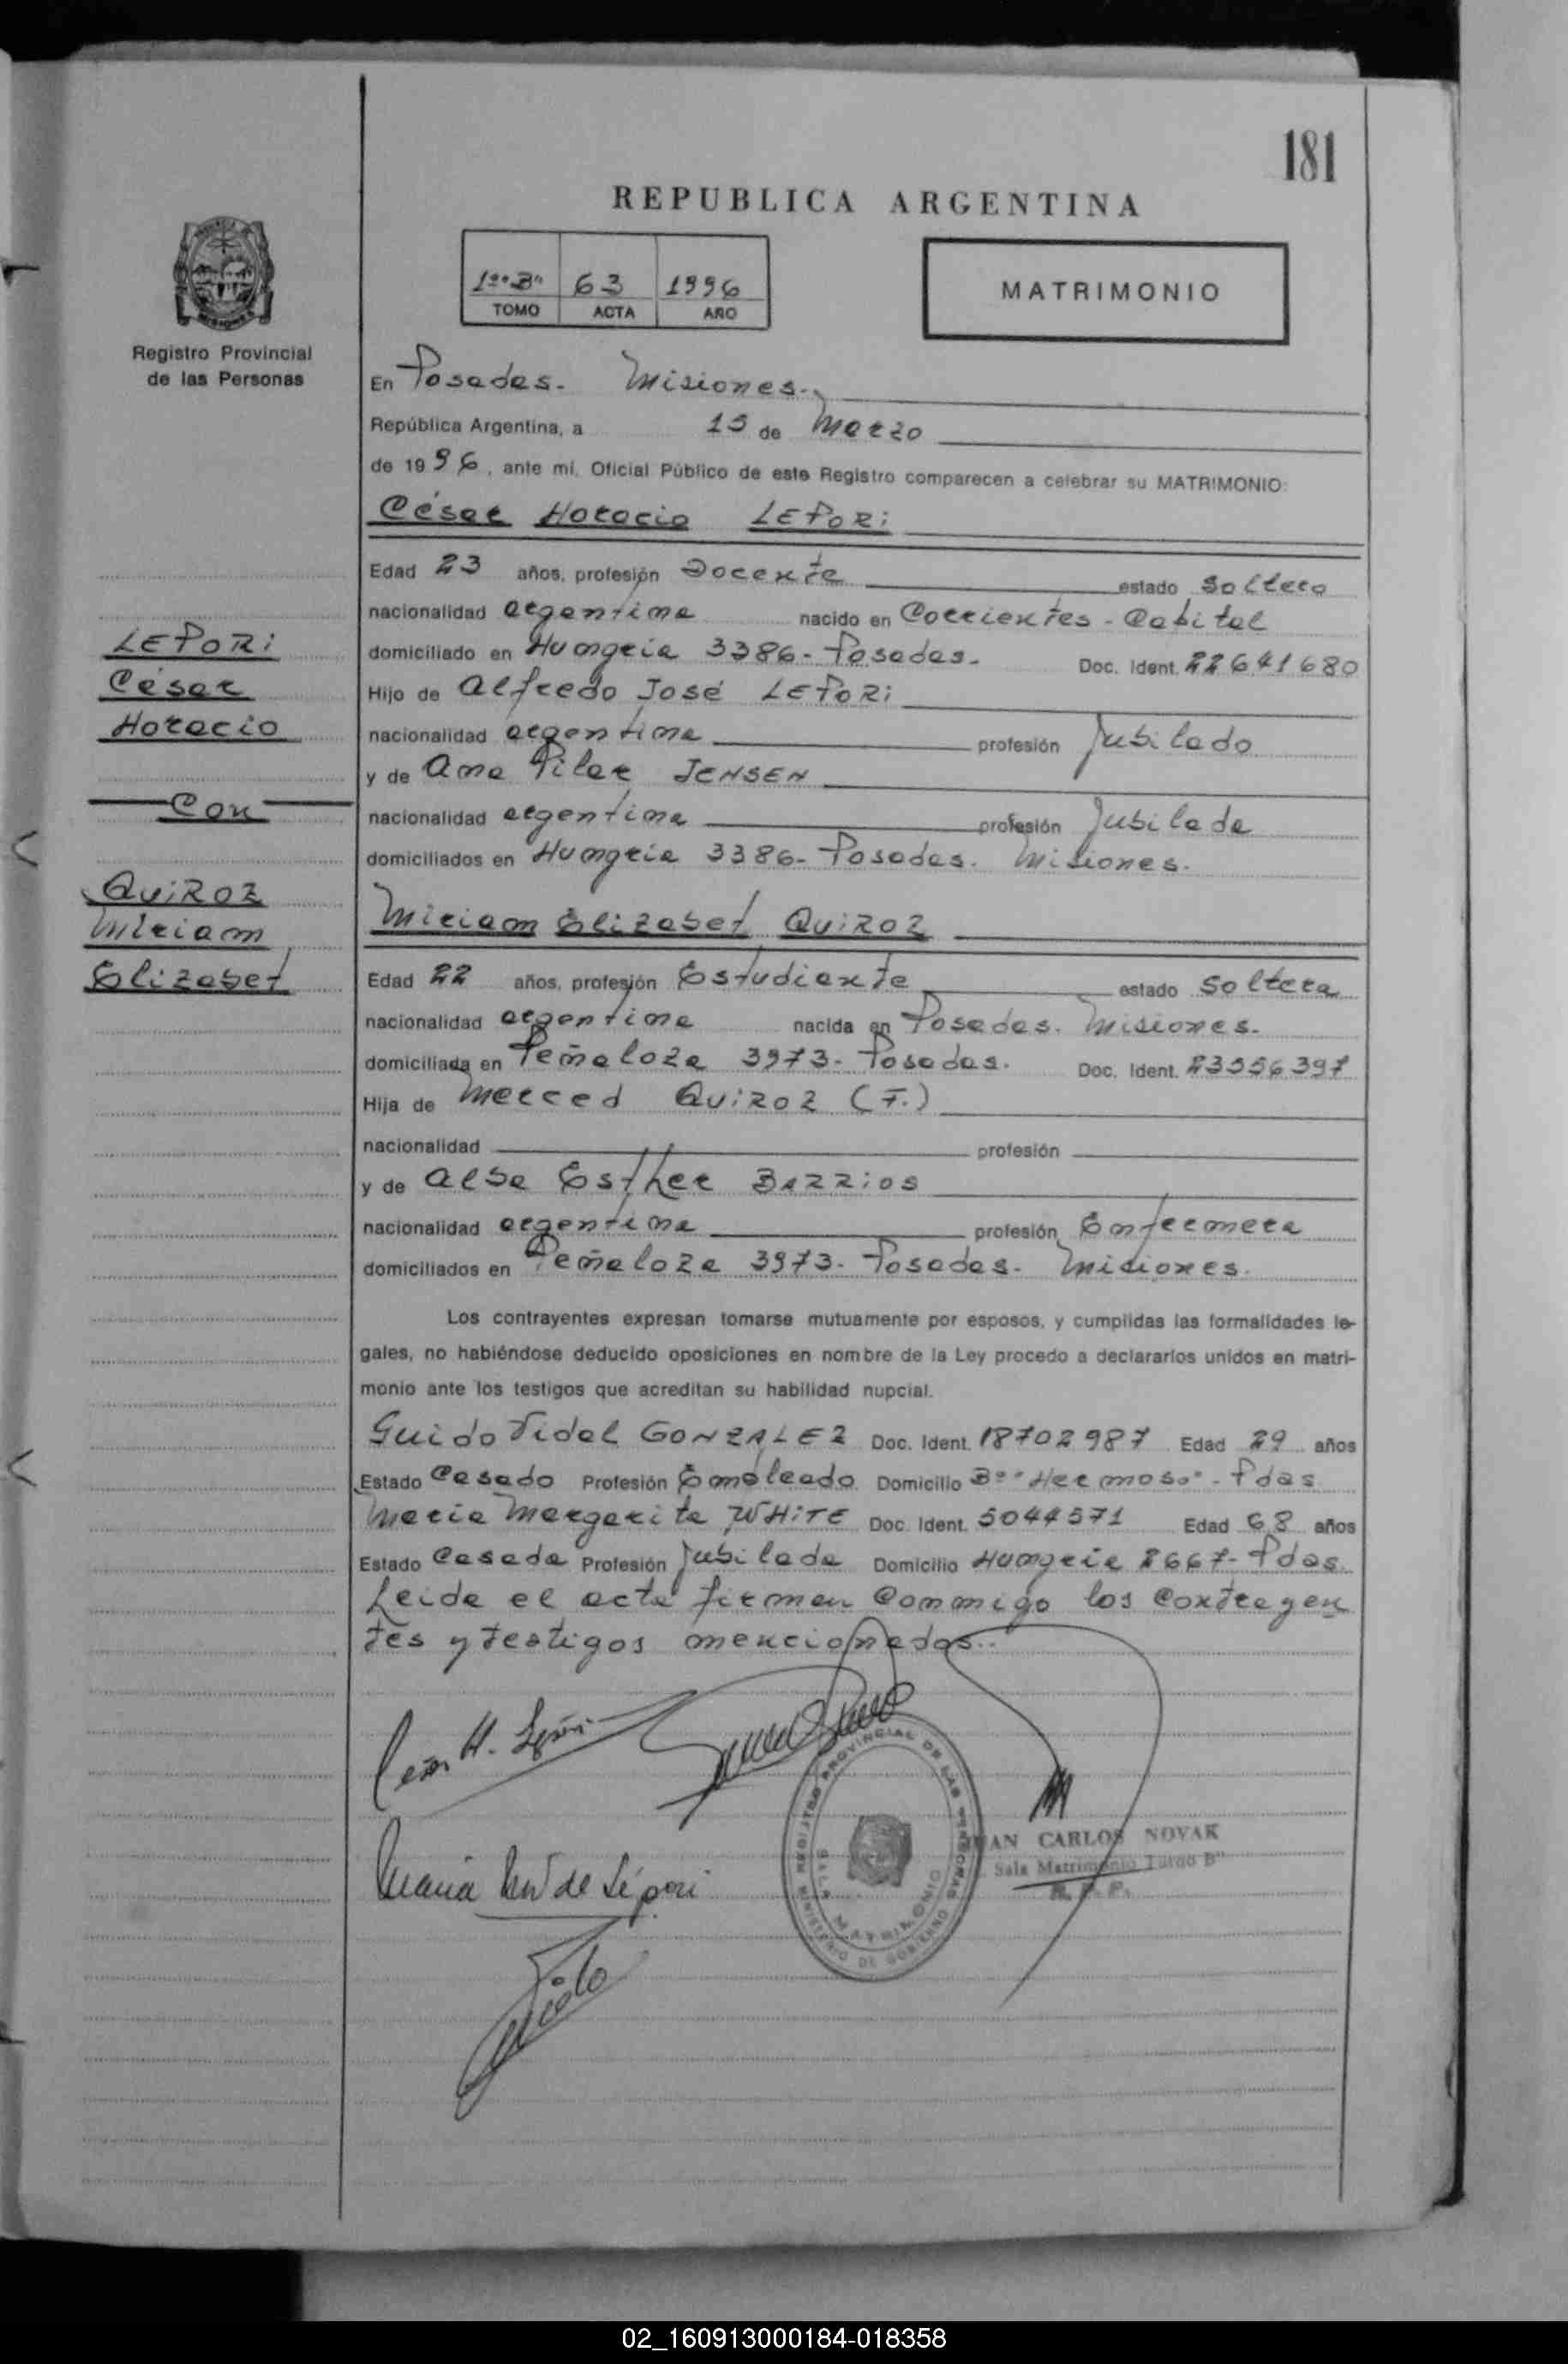 181
REPUBLICA ARGENTINA
1º"B" 63 1996
TOMO ACTA AÑO
MATRIMONIO
Registro Provincial
de las Personas
En Posadas. Misiones.
República Argentina, a 15 de Marzo
de 1996, ante mí, Oficial Público de este Registro comparecen a celebrar su MATRIMONIO:
César Horacio LEPORI
Edad 23 años, profesión Docente estado Soltero
nacionalidad argentina nacido en Corrientes - Capital
domiciliado en Hungría 3386- Posadas. Doc. Ident. 22641680
Hijo de Alfredo José LEPORI
nacionalidad argentina profesión Jubilado
y de Ana Pilar JENSEN
nacionalidad argentina profesión Jubilada
domiciliados en Hungría 3386- Posadas. Misiones.
Miriam Elizabet QUIROZ
Edad 22 años, profesión Estudiante estado Soltera
nacionalidad argentina nacida en Posadas. Misiones.
domiciliada en Peñaloza 3973- Posadas. Doc. Ident. 23556397
Hija de Merced QUIROZ (F.)
nacionalidad profesión
y de Alba Esther BARRIOS
nacionalidad argentina profesión Enfermera
domiciliados en Peñaloza 3973- Posadas- Misiones.
LEPORI
César
Horacio
Con
QUIROZ
Miriam
Elizabet
Los contrayentes expresan tomarse mutuamente por esposos, y cumplidas las formalidades le-
gales, no habiéndose deducido oposiciones en nombre de la Ley procedo a declararlos unidos en matri-
monio ante los testigos que acreditan su habilidad nupcial.
Guido Fidel GONZALEZ Doc. Ident. 18702987 Edad 29 años
Estado Casado Profesión Empleado Domicilio Bº"Hermoso"- Pdas
María Margarita WHITE Doc. Ident. 5044571 Edad 68 años
Estado Casada Profesión Jubilada Domicilio Hungría 2667- Pdas.
Leída el acta firman conmigo los contrayen
tes y testigos mencionados..
César H. Lepori
REGISTRO PROVINCIAL DE LAS PERSONAS
SALA MATRIMONIO
MINISTERIO DE GOBIERNO
JUAN CARLOS NOVAK
Sala Matrimonio Turno B"
R. P. P.
02_160913000184-018358